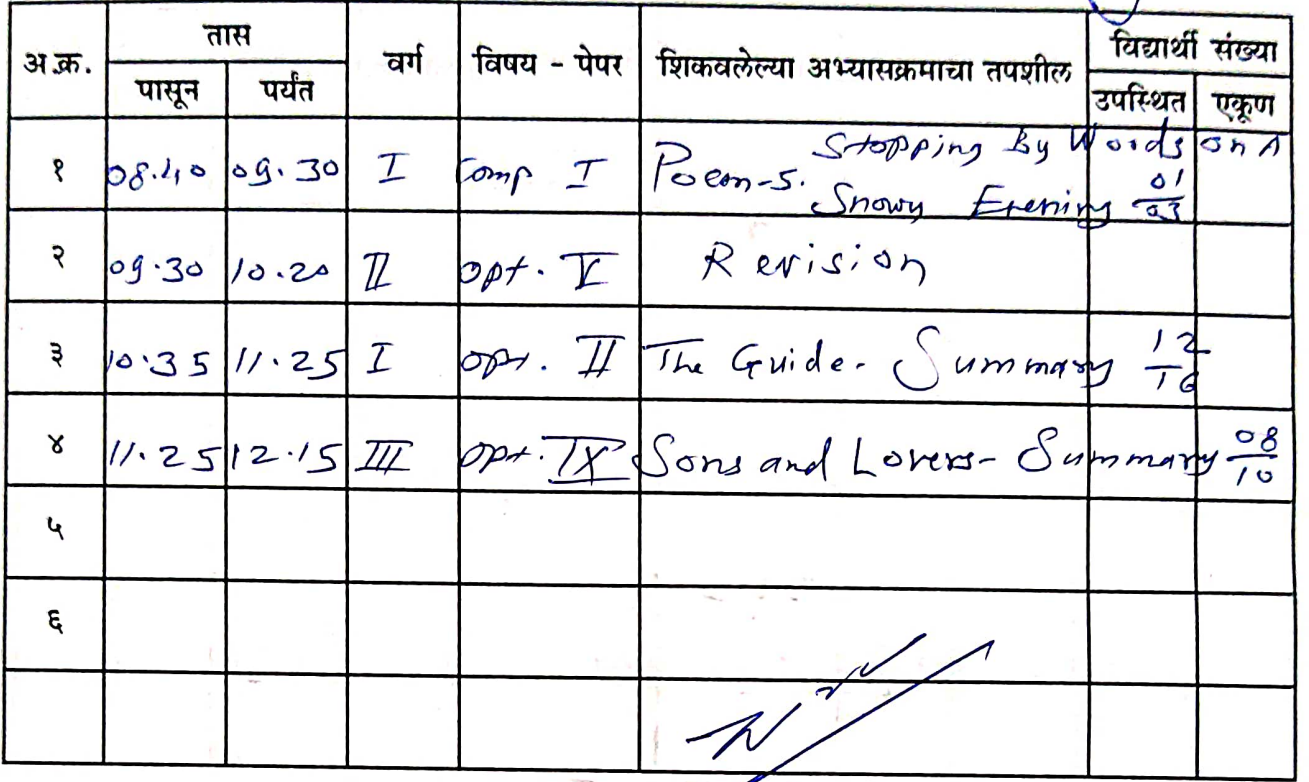 अ.क्र. तास वर्ग विषय - पेपर शिकवलेल्या अभ्यासक्रमाचा तपशील विद्यार्थी संख्या
पासून पर्यंत उपस्थित एकूण
१ 08.40 09.30 I Comp I Poem-5. Stopping By Woods on A
Snowy Evening 01/03
२ 09.30 10.20 II opt. V Revision
३ 10.35 11.25 I opt. II The Guide- Summary 12/16
४ 11.25 12.15 III opt. IX Sons and Lovers- Summary 08/10
५
६